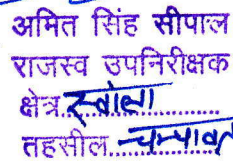 अमित सिंह सीपाल
राजस्व उपनिरीक्षक
क्षेत्र..स्वाला..........
तहसील...चम्पावत